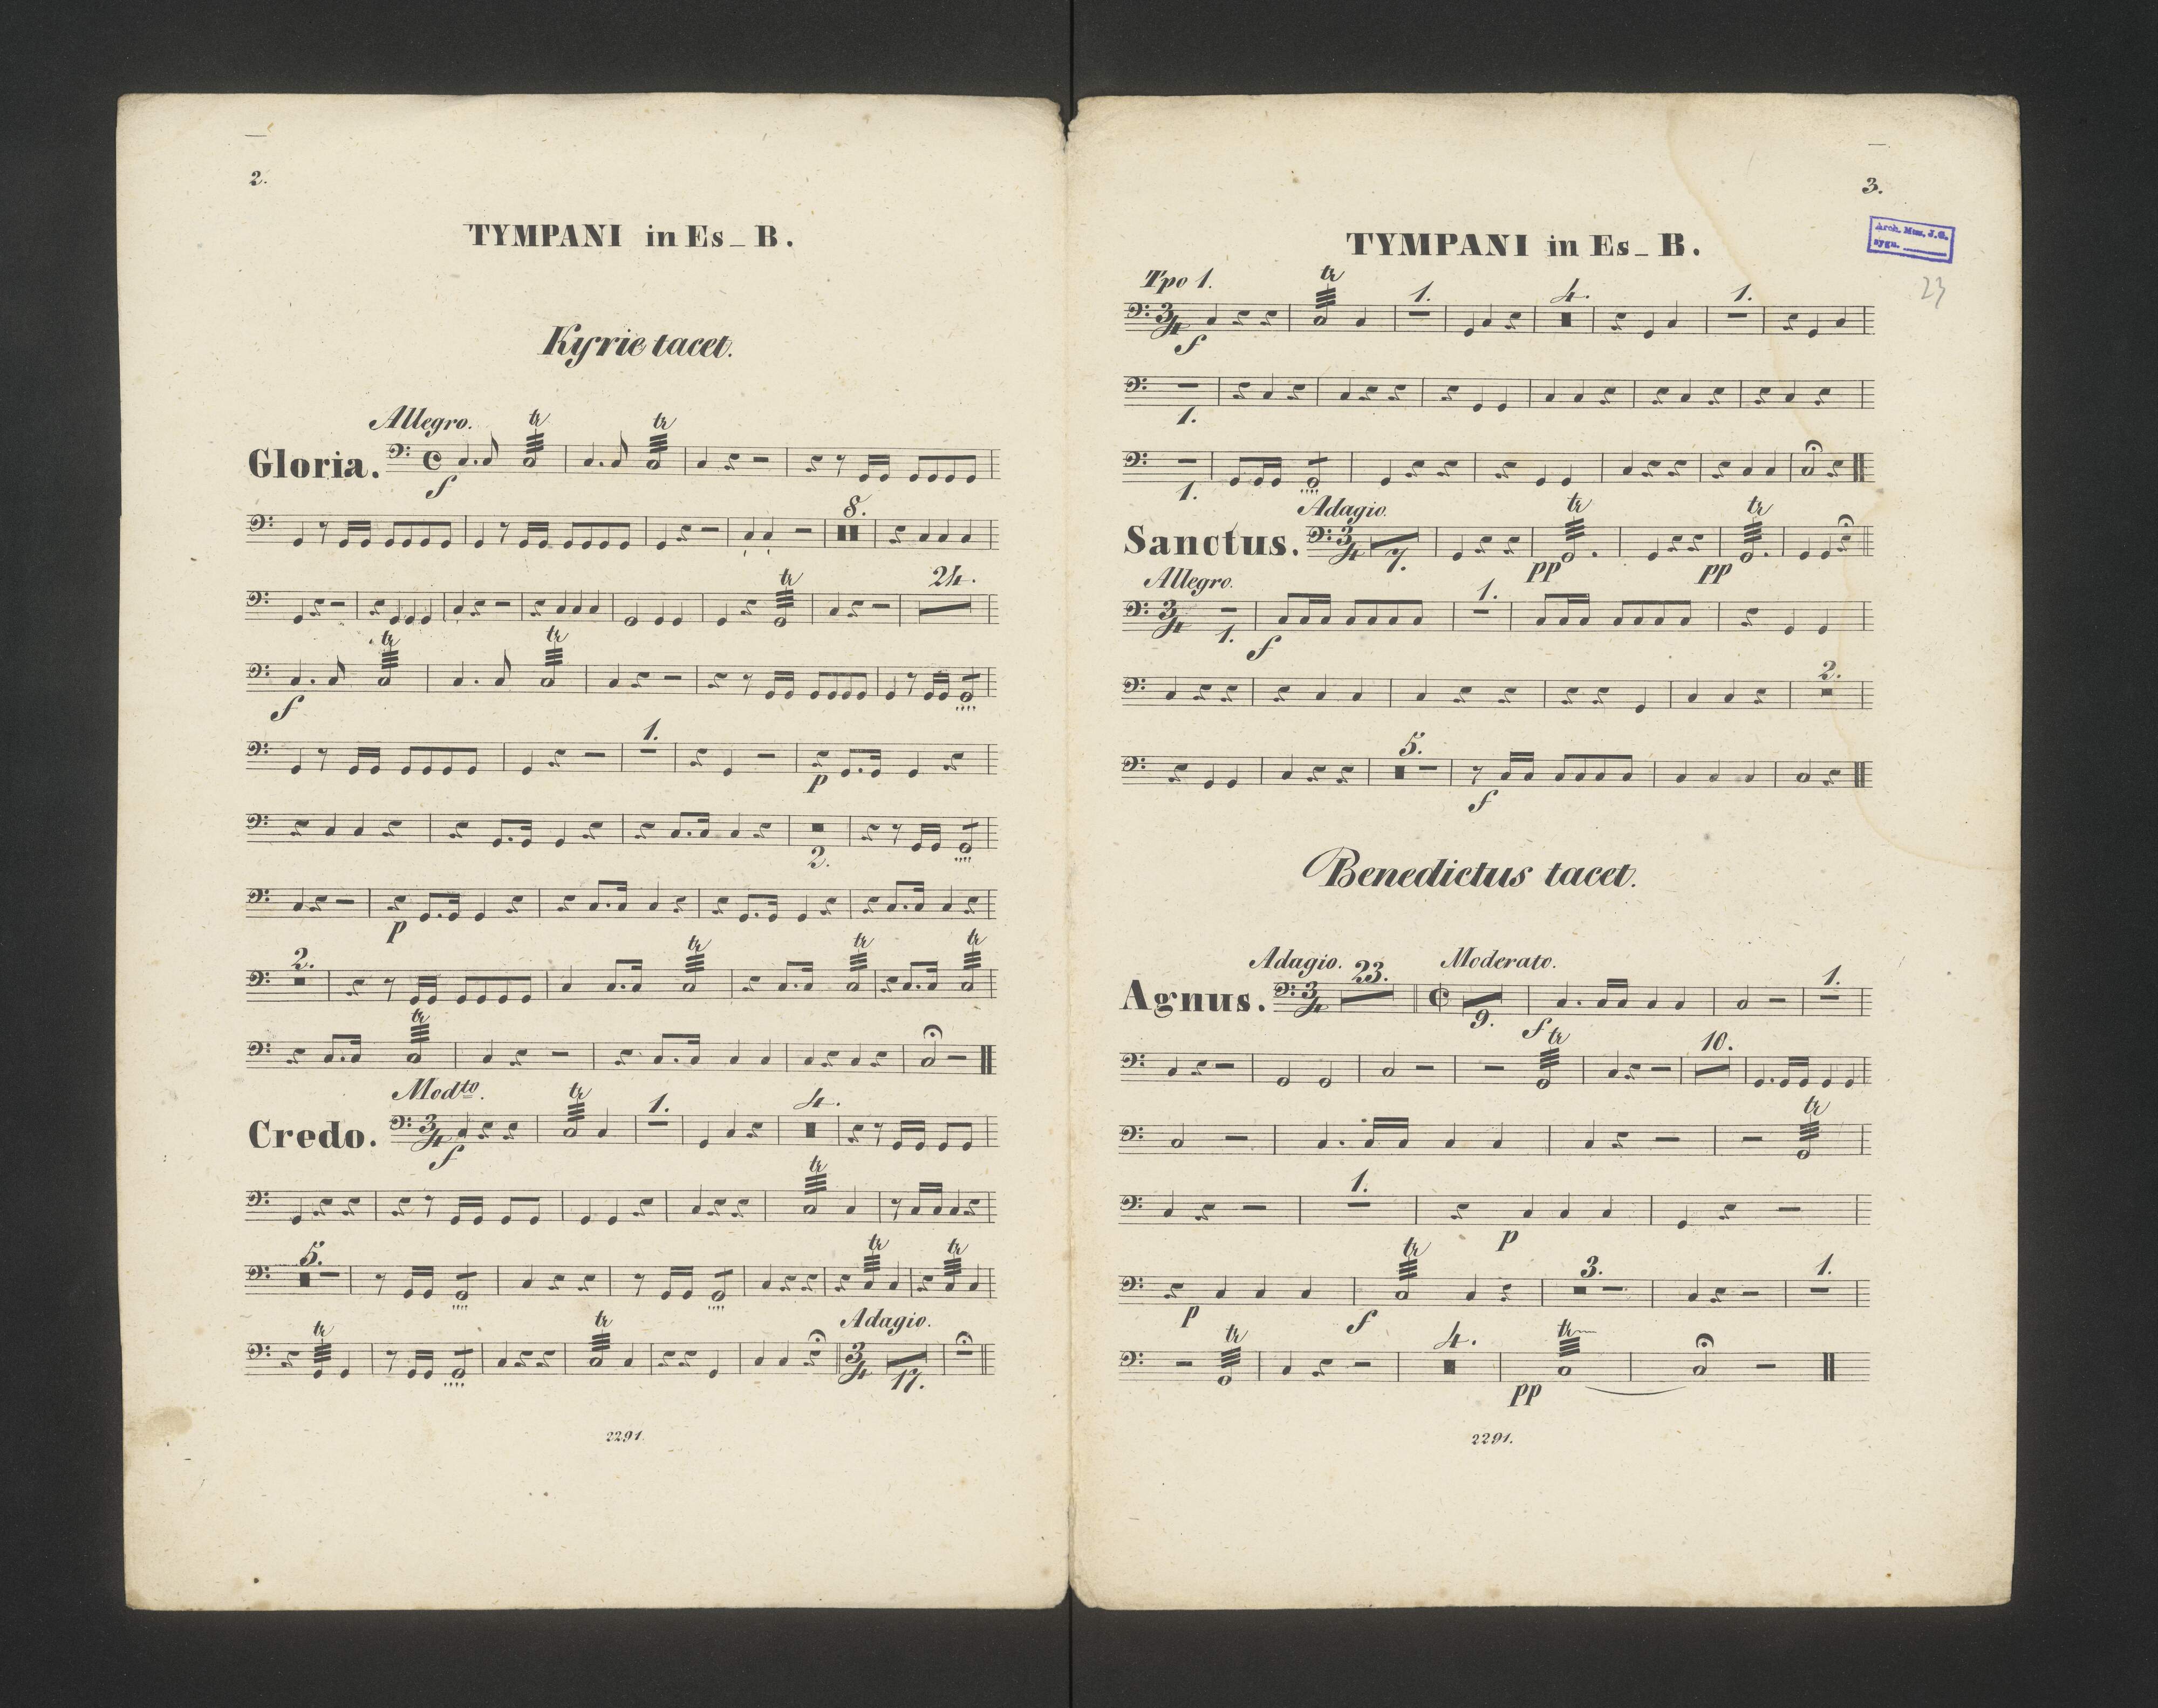 2.
TYMPANI in Es_B.
Kyrie tacet.
Allegro.
tr tr
Gloria.
f
8.
tr 24.
tr tr
f
1.
p
2.
p
2. tr tr tr
tr
Modto.
tr 1. 4.
Credo.
f
tr
5. tr tr
Adagio.
tr tr
17.
2291.
3.
TYMPANI in Es_B.
Arch. Muz. J.G.
sygn.
23
Tpo 1.
tr 1. 4. 1.
f
1.
1.
Adagio.
tr tr
Sanctus.
7. pp pp
Allegro.
1.
1. f
2.
5.
f
Benedictus tacet.
Adagio. 23. Moderato.
1.
Agnus.
9. f
tr 10.
tr
1.
p
tr 3. 1.
p f
tr 4. tr
pp
2291.